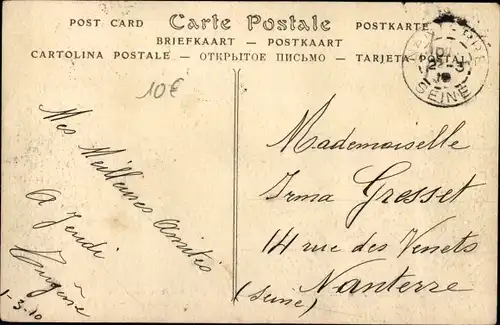 POST CARD Carte Postale POSTKARTE
BRIEFKAART — POSTKAART
CARTOLINA POSTALE — ОТКРЫТОЕ ПИСЬМО — TARJETA POSTAL
SEINE
10€
Mes Meilleures Amitiés
A Jeudi
Eugène
1-3-10
Mademoiselle
Irma Gresset
14 rue des Venets
Nanterre
(Seine)